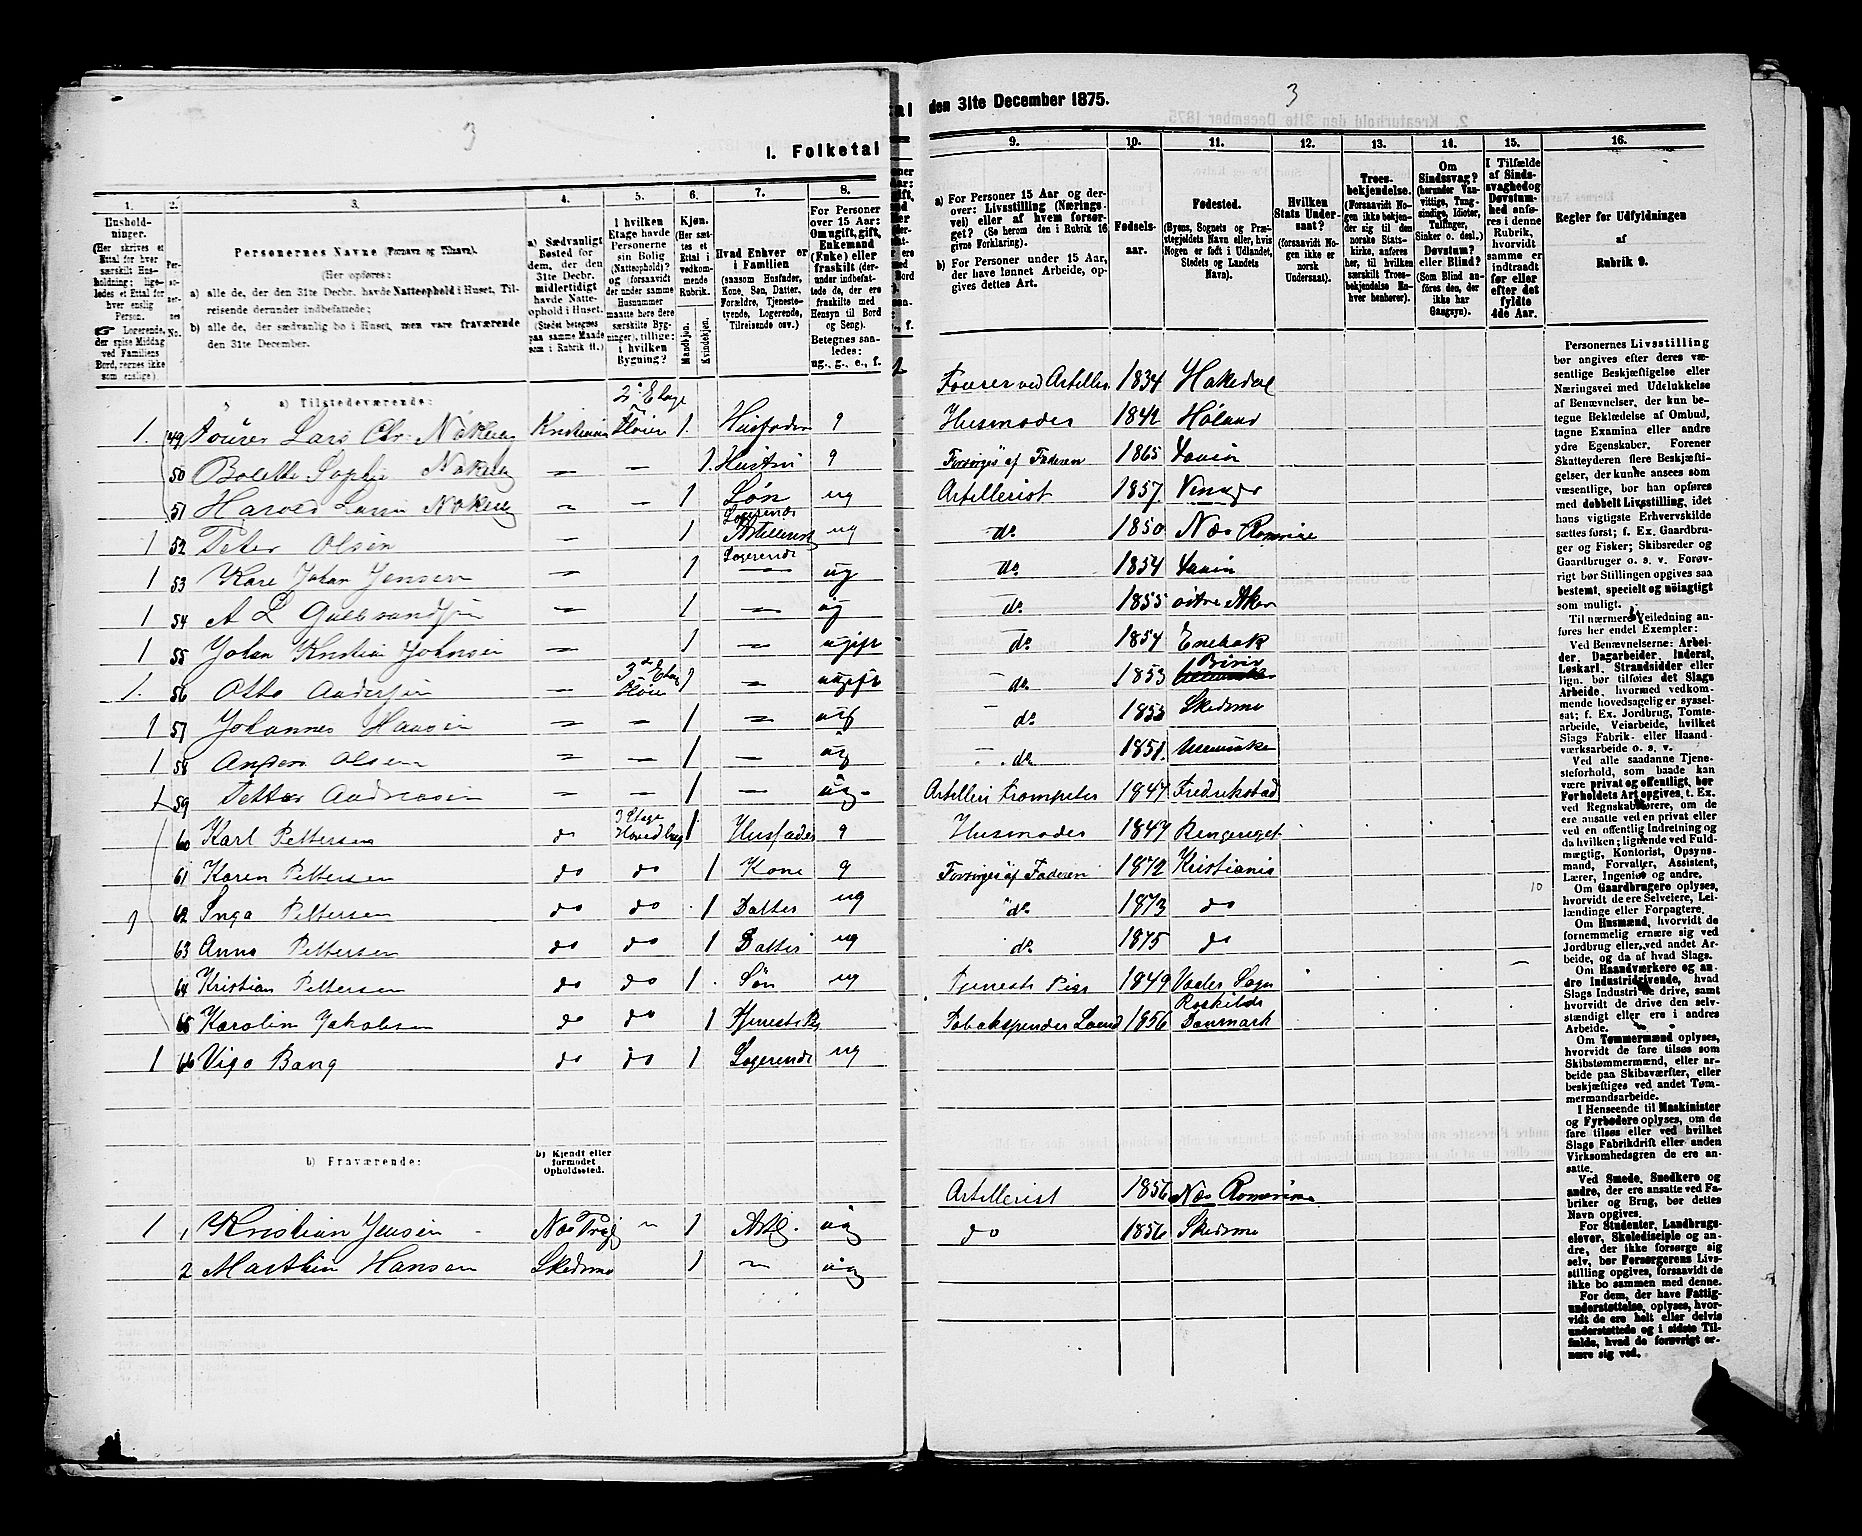 3
I. Folketal
1.
2.
3.
4.
5.
6.
7.
8.
Husholdninger.
(Her skrives et
Ettal for hver
særskilt Husholdning;
ligeledes et Ettal for
hver enslig
Person.
Logerende,
der spise Middag
ved Familiens
Bord, regnes ikke
som enslige).
Personernes No.
Personernes Navne (Fornavn og Tilnavn).
(Her opføres:
a) alle de, der den 31te Decbr. havde Natteophold i Huset, Tilreisende
derunder indbefattede;
b) alle de, der sædvanlig bo i Huset, men vare fraværende
den 31te December.
a) Sædvanligt
Bosted for
dem, der den
31te Decbr.
midlertidigt
havde Natteophold
i Huset.
(Stedet betegnes
paa samme Maade
som i Rubrik 11.)
I hvilken
Etage havde
Personerne
sin Bolig
(Natteophold)?
og (forsaavidt
der under samme
Husnummer
maatte høre flere
særskilte Bygninger),
tillige:
i hvilken
Bygning?
Kjøn.
(Her sættes
et
Ettal i
vedkommende
Rubrik.
Mandkjøn.
Kvindekjøn.
Hvad Enhver er
i Familien
(saasom Husfader,
Kone, Søn, Datter,
Forældre, Tjenestetyende,
Logerende,
Tilreisende osv.)
For Personer
over 15 Aar:
Om ugift, gift,
Enkemand
(Enke) eller
fraskilt (derunder
indbefattede
de, der ere
fraskilte med
Hensyn til Bord
og Seng).
Betegnes saaledes:
ug., g., e., f.
a) Tilstedeværende:
2den Etage
1. 49 Fourer Lars Chr. Nökleby Kristiania Fløien 1. Husfader g
50 Bolette Sophie Nökleby — — 1 Hustru g
51 Harald Lauri Nökleby — — 1 Søn ug
1 52 Peter Olsen — 1 Logerende Artillerist ug
1 53 Kare Johan Jensen — 1 Logerende — ug
1 54 A L Gulbrandsen — 1 — ug
1 55 Johan Kristian Johnsen — 1 — ugift
1. 56 Otto Andersen — 3de Etag Fløien 1 — ugift
1 57 Johannes Hansen — — 1 — ug
1 58 Anders Olsen — — 1 — ug
1 59 Petter Andreasen — — 1 — ug
60 Karl Pettersen do 3 Etage Hovedbyg 1 Husfader g
61 Karen Pettersen do do 1 Kone g
1 62 Inga Pettersen do do 1 Datter ug
63 Anna Pettersen do do 1 Datter ug
64 Kristian Pettersen do do 1 Søn ug
65 Karolin Jakobsen do do 1 Tjenests Pi
1 66 Vigo Bang do do 1 Logerende ug
b) Fraværende:
b) Kjendt eller
formodet
Opholdssted.
1 1 Kristian Jensen Næs — 1 Artil. ug
2 Marthin Hansen Skedsmo 1 — ug
den 31te December 1875.
3
9.
10.
11.
12.
13.
14.
15.
16.
a) For Personer 15 Aar og derover:
Livsstilling (Næringsvei)
eller af hvem forsørget?
(Se herom den i Rubrik 16
givne Forklaring).
b) For Personer under 15 Aar,
der have lønnet Arbeide, opgives
dettes Art.
Fødselsaar.
Fødested.
(Byens, Sognets og Præstegjeldets
Navn eller, hvis
Nogen er født i Udlandet,
Stedets og Landets
Navn).
Hvilken
Stats Undersaat?
(forsaavidt Nogen
ikke er
norsk
Undersaat).
Troesbekjendelse.
(Forsaavidt Nogen
ikke bekjender
sig til den
norske Statskirke,
anføres
her, til hvilken
særskilt Troesbekjendelse
Enhver
henhører).
Om
Sindssvag?
(herunder Vanvittige,
Tungsindige,
Idioter,
Tullinger,
Sinker o. desl.)
Døvstum?
eller Blind?
(Som Blind anføres
den, der
ikke har
Gangsyn).
I Tilfælde
af Sindssvaghed
og
Døvstumhed
anføres
i denne
Rubrik,
hvorvidt
samme er
indtraadt
før eller
efter det
fyldte
4de Aar.
Regler for Udfyldningen
af
Rubrik 9.
Fourer ved Artilleri 1834 Hakedal
Husmoder 1842 Høland
Forsørges af Faderen 1865
Artillerist 1857 Vinger
do 1850 Næs Romerike
do 1854
do 1855 østre Aker
do 1854 Enebak
do 1853 Biri
do 1853 Skedsmo
do 1851 Ullensaker
Artilleri Trompeter 1847 Fredrikstad
Husmoder 1847 Ringeriget
Forsørges af Faderen 1872 Kristiania
do 1873 do 10
do 1875 do
Tjenests Pige 1849 Vaaler Sogn
Tobakspinder Lærd 1856 Roskilde Danmark
Artillerist 1856 Næs Romerike
do 1856 Skedsmo
Personernes Livsstilling
bør angives efter deres væsentlige
Beskjæftigelse eller
Næringsvei med Udelukkelse
af Benævnelser, der kun betegne
Beklædelse af Ombud,
tagne Examina eller andre
ydre Egenskaber. Forener
Skatteyderen flere Beskjæftigelser,
der kunne ansees som
væsentlige, bør han opføres
med dobbelt Livsstilling, idet
hans vigtigste Erhvervskilde
sættes først; f. Ex. Gaardbruger
og Fisker; Skibsreder og
Gaardbruger o. s. v. Forøvrigt
bør Stillingen opgives saa
bestemt, specielt og nöiagtigt
som muligt.
Til nærmere Veiledning anføres
her endel Exempler:
Ved Benævnelserne: Arbeider,
Dagarbeider, Inderst,
Løskarl, Strandsidder eller
lign. bør tilføies det Slags
Arbeide, hvormed vedkommende
hovedsagelig er sysselsat;
f. Ex. Jordbrug, Tomtearbeide,
Veiarbeide, hvilket
Slags Fabrik- eller Haandværksarbeide
o. s. v.
Ved alle saadanne Tjenesteforhold,
som baade kan
være privat og offentligt, bør
Forholdets Art opgives, t. Ex.
ved Regnskabsførere, om de
ere ansatte ved en privat eller
ved en offentlig Indretning og
da hvilken; lignende ved Fuldmægtig,
Kontorist, Opsynsmand,
Forvalter, Assistent,
Lærer, Ingeniør og andre.
Om Gaardbrugere oplyses,
hvorvidt de ere Selveiere, Leilændinge
eller Forpagtere.
Om Husmænd, hvorvidt de
fornemmelig ernære sig ved
Jordbrug eller ved andet Arbeide,
og da af hvad Slags.
Om Haandværkere og andre
Industridrivende, hvad
Slags Industri de drive, samt
hvorvidt de drive den selvstændigt
eller ere i andres
Arbeide.
Om Tømmermænd oplyses,
hvorvidt de fare tilsøs som
Skibstømmermænd, eller arbeide
paa Skibsværfter, eller
beskjæftiges ved andet Tømmermandsarbeide.
I Henseende til Maskinister
og Fyrbødere oplyses, om de
fare tilsøs eller ved hvilket
Slags Fabrikdrift eller anden
Virksomhedsgren de ere ansatte.
Ved Smede, Snedkere og
andre, der ere ansatte ved Fabriker
og Brug, bør dettes
Navn opgives.
For Studenter, Landbrugselever,
Skoledisciple og andre,
der ikke forsørge sig
selv, bør Forsørgerens Livsstilling
opgives, forsaavidt de
ikke bo sammen med denne.
For dem, der have Fattigunderstøttelse,
oplyses, hvorvidt
de ere helt eller delvis
understøttede og i sidste Tilfælde,
hvad de forøvrigt ernære
sig ved.